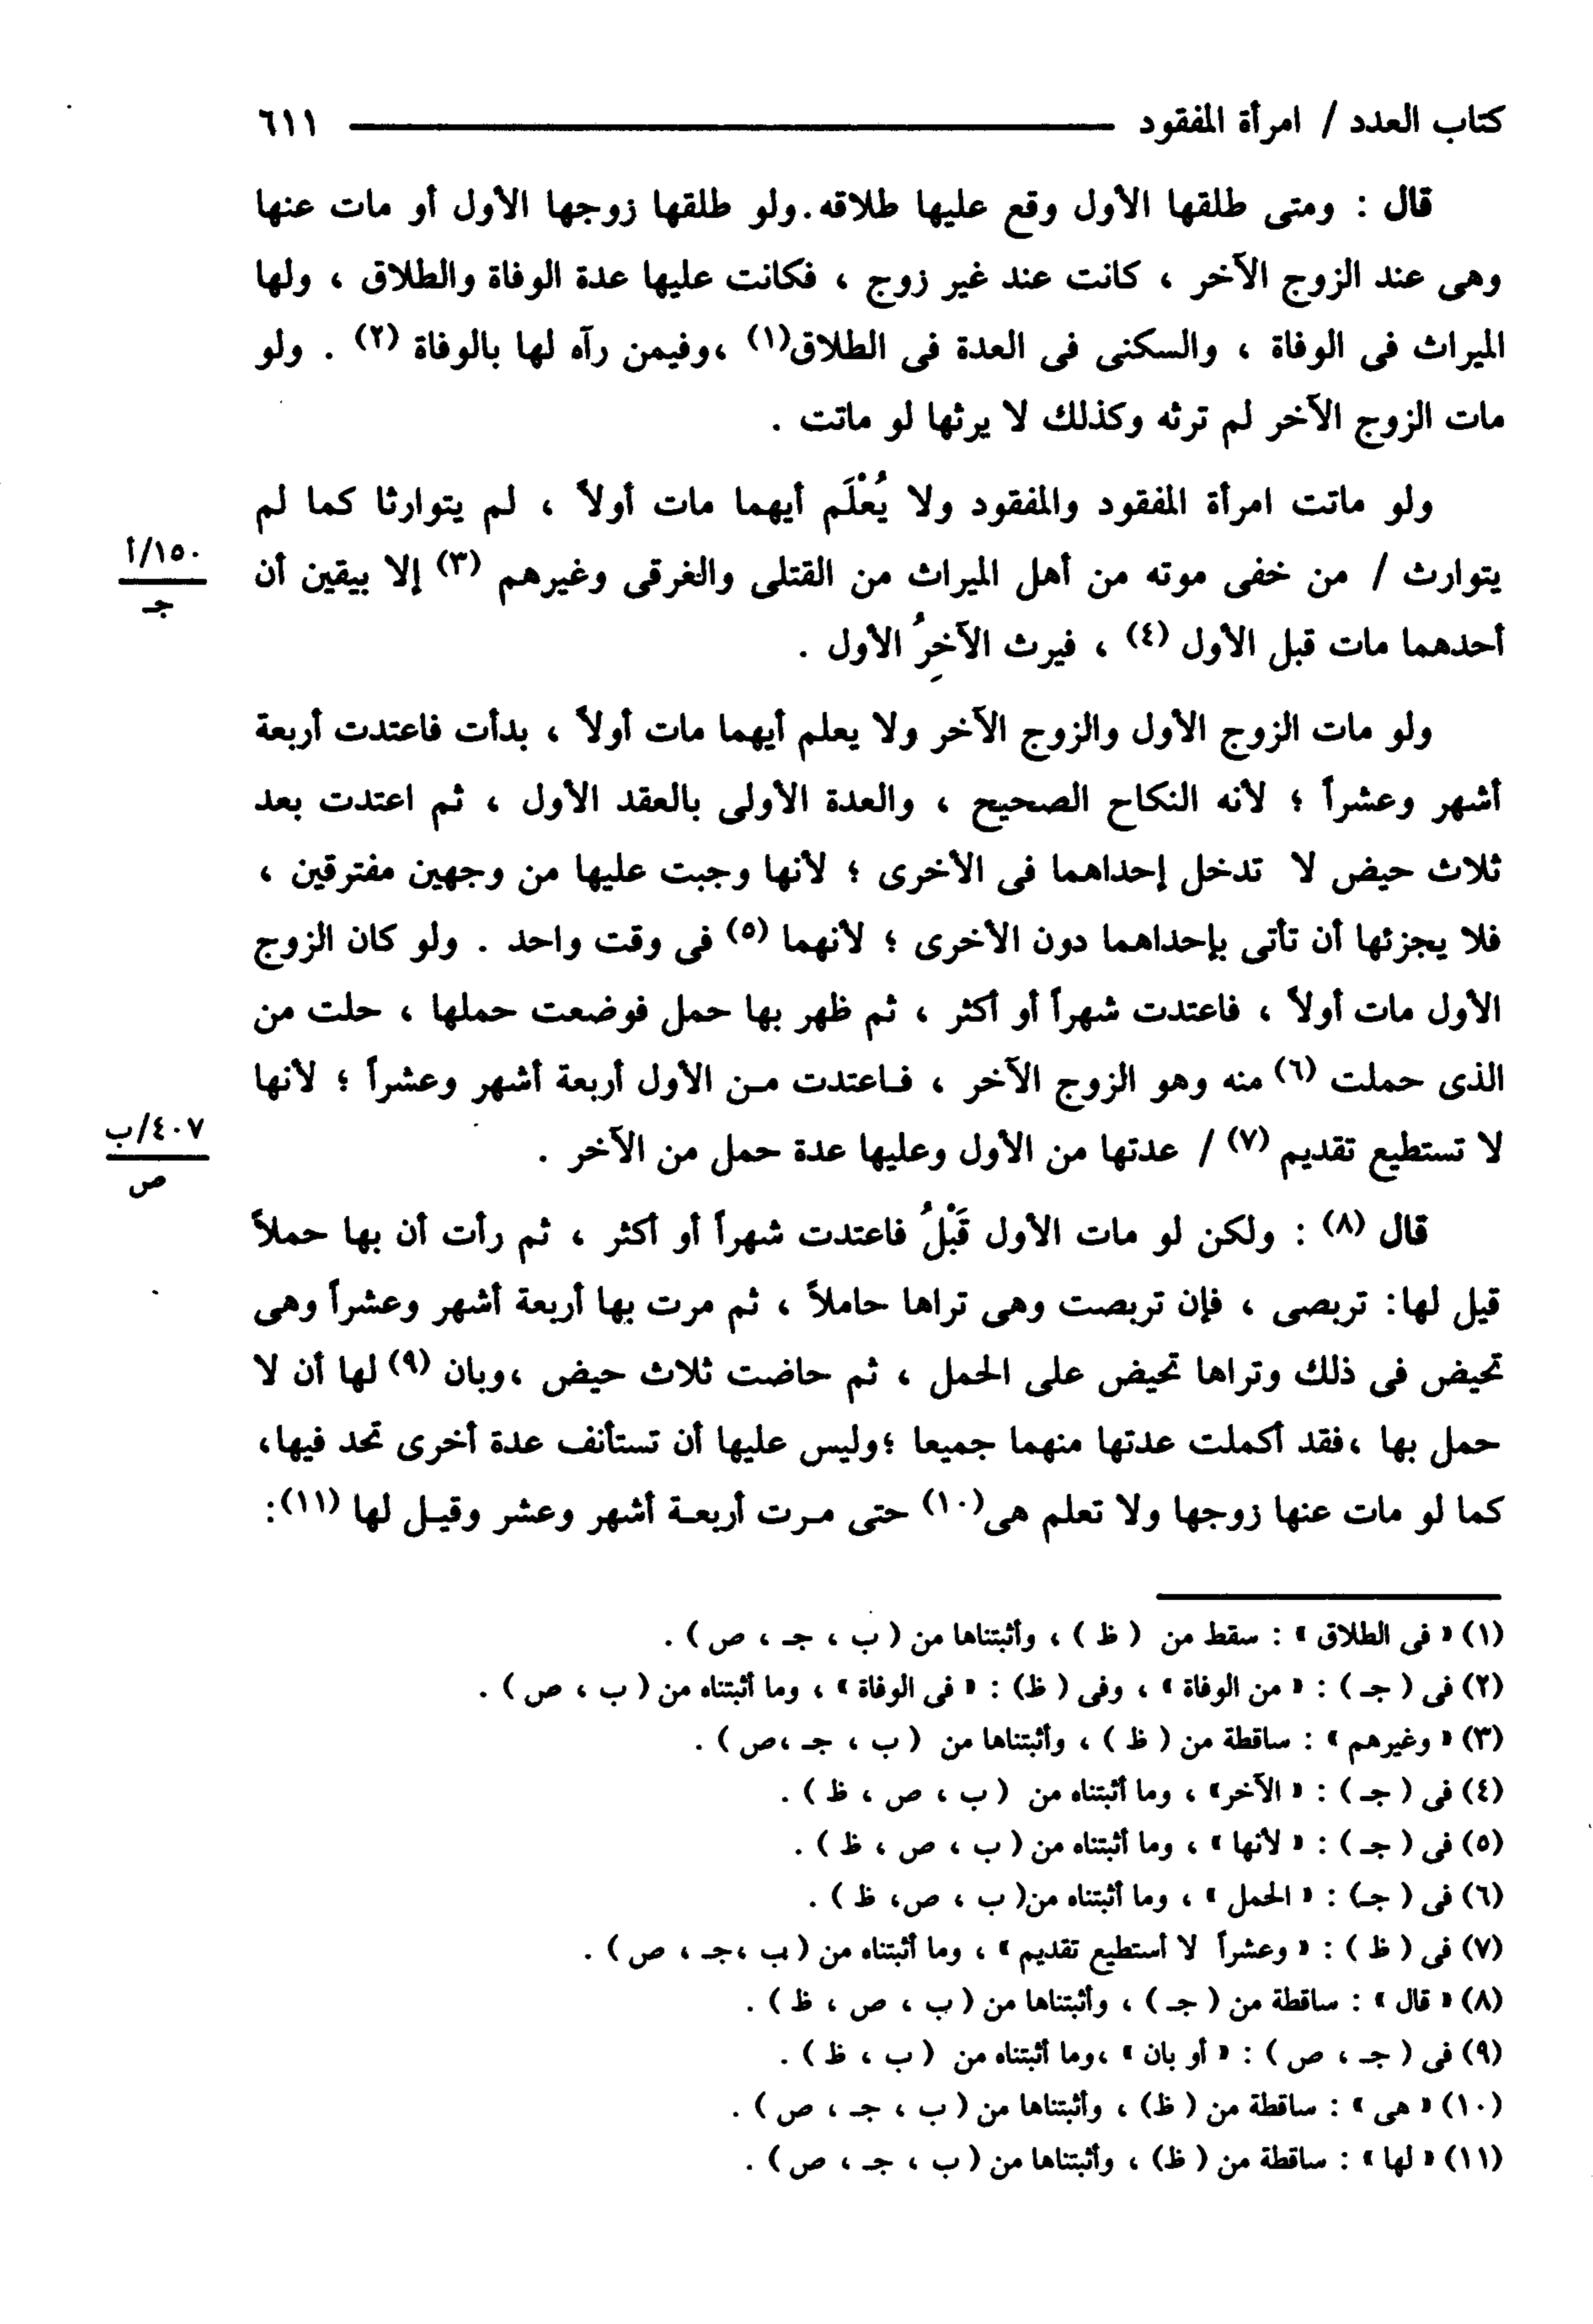 كتاب العدد / امرأة المفقود ــــــــــــــــــــ ٦١١
قال : ومتى طلقها الأول وقع عليها طلاقه. ولو طلقها زوجها الأول أو مات عنها
وهى عند الزوج الآخر ، كانت عند غير زوج ، فكانت عليها عدة الوفاة والطلاق ، ولها
الميراث فى الوفاة ، والسكنى فى العدة فى الطلاق(١) ،وفيمن رآه لها بالوفاة (٢) . ولو
مات الزوج الآخر لم ترثه وكذلك لا يرثها لو ماتت .
ولو ماتت امرأة المفقود والمفقود ولا يُعْلَم أيهما مات أولاً ، لم يتوارثا كما لم
يتوارث / من خفى موته من أهل الميراث من القتلى والغرقى وغيرهم (٣) إلا بيقين أن
١٥٠/أ
جـ
أحدهما مات قبل الأول (٤) ، فيرث الآخِرُ الأول .
ولو مات الزوج الأول والزوج الآخر ولا يعلم أيهما مات أولاً ، بدأت فاعتدت أربعة
أشهر وعشراً ؛ لأنه النكاح الصحيح ، والعدة الأولى بالعقد الأول ، ثم اعتدت بعد
ثلاث حيض لا تدخل إحداهما فى الأخرى ؛ لأنها وجبت عليها من وجهين مفترقين ،
فلا يجزئها أن تأتى بإحداهما دون الأخرى ؛ لأنهما (٥) فى وقت واحد . ولو كان الزوج
الأول مات أولاً ، فاعتدت شهراً أو أكثر ، ثم ظهر بها حمل فوضعت حملها ، حلت من
الذى حملت (٦) منه وهو الزوج الآخر ، فـاعتدت مـن الأول أربعة أشهر وعشراً ؛ لأنها
لا تستطيع تقديم (٧) / عدتها من الأول وعليها عدة حمل من الآخر .
٤٠٧/ب
ص
قال (٨) : ولكن لو مات الأول قَبْلُ فاعتدت شهراً أو أكثر ، ثم رأت أن بها حملاً
قيل لها: تربصى ، فإن تربصت وهى تراها حاملاً ، ثم مرت بها أربعة أشهر وعشراً وهى
تحيض فى ذلك وتراها تحيض على الحمل ، ثم حاضت ثلاث حيض ،وبان (٩) لها أن لا
حمل بها ،فقد أكملت عدتها منهما جميعا ؛وليس عليها أن تستأنف عدة أخرى تحد فيها،
كما لو مات عنها زوجها ولا تعلم هى(١٠) حتى مـرت أربعـة أشهر وعشر وقيـل لها (١١):
(١) « فى الطلاق » : سقط من ( ظ ) ، وأثبتناها من ( ب ، جـ ، ص ) .
(٢) فى ( جـ ) : « من الوفاة » ، وفى ( ظ) : « فى الوفاة » ، وما أثبتناه من ( ب ، ص ) .
(٣) « وغيرهم » : ساقطة من ( ظ ) ، وأثبتناها من ( ب ، جـ ،ص ) .
(٤) فى ( جـ ) : « الآخر» ، وما أثبتناه من ( ب ، ص ، ظ ) .
(٥) فى ( جـ ) : « لأنها » ، وما أثبتناه من ( ب ، ص ، ظ ) .
(٦) فى ( جـ) : « الحمل » ، وما أثبتناه من( ب ، ص، ظ ) .
(٧) فى ( ظ ) : « وعشراً لا أستطيع تقديم » ، وما أثبتناه من ( ب ،جـ ، ص ) .
(٨) « قال » : ساقطة من ( جـ ) ، وأثبتناها من ( ب ، ص ، ظ ) .
(٩) فى ( جـ ، ص ) : « أو بان » ،وما أثبتناه من ( ب ، ظ ) .
(١٠) « هى » : ساقطة من ( ظ) ، وأثبتناها من ( ب ، جـ ، ص ) .
(١١) « لها » : ساقطة من ( ظ) ، وأثبتناها من ( ب ، جـ ، ص ) .